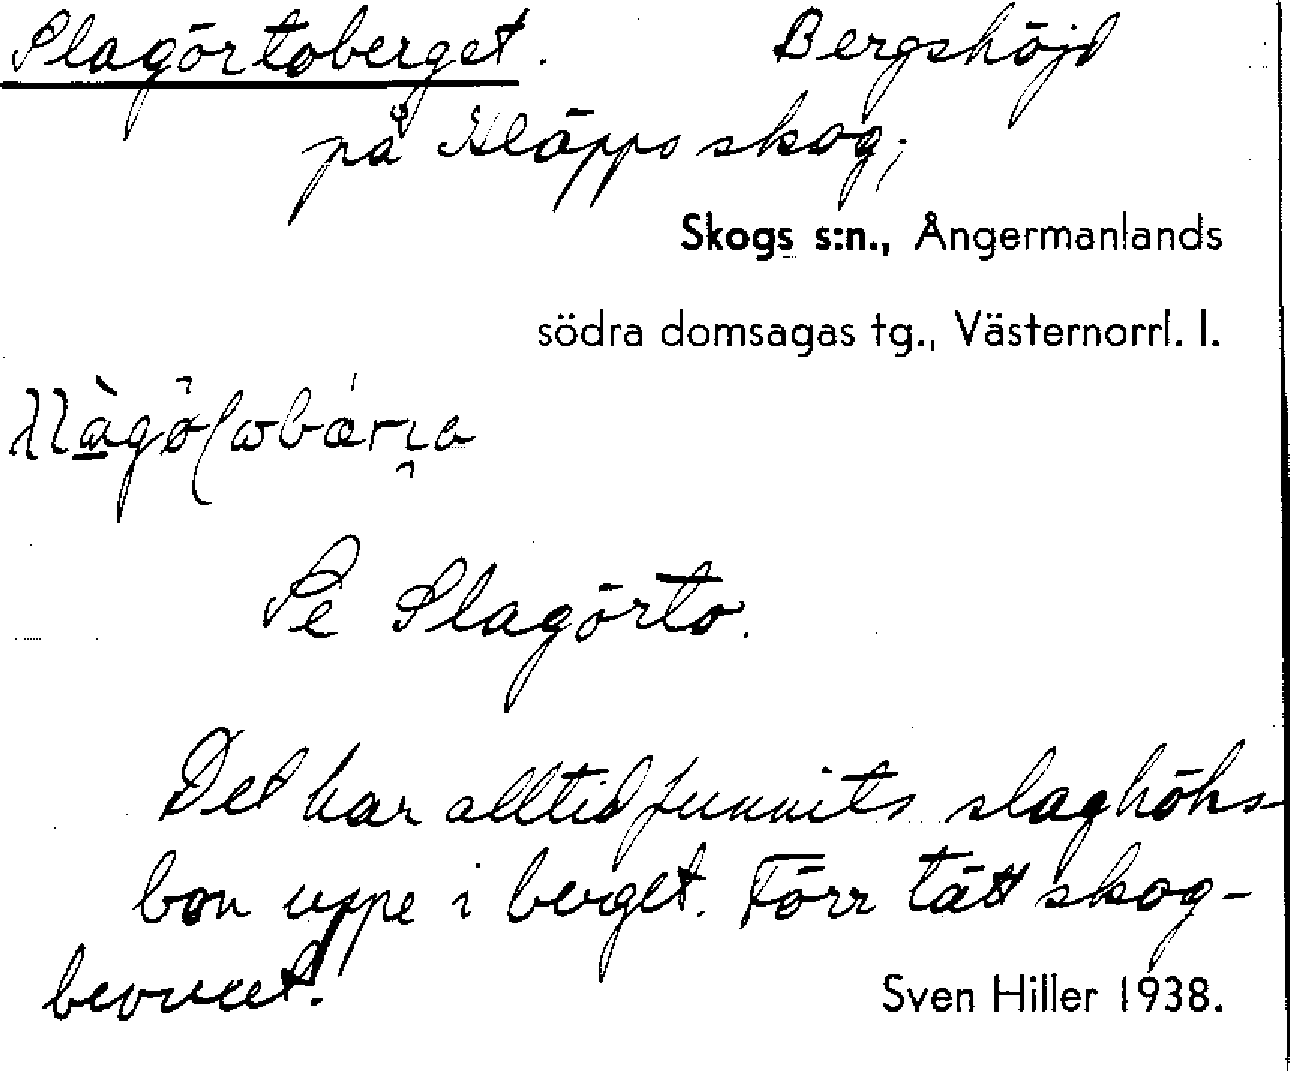 Slagörtoberget. Bergshöjd
på Kläpps skog;
Skogs s:n., Ångermanlands
södra domsagas tg., Västernorrl. l.
Pe Slagörto.
Det har alltid funnits slaghöks-
bon uppe i berget. Förr tätt skog-
bevuxet.
Sven Hiller 1938.